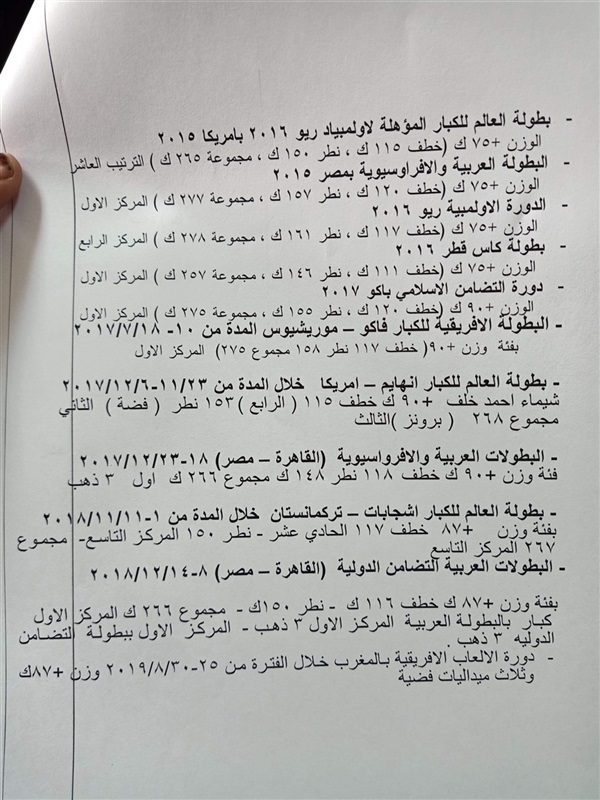 - بطولة العالم للكبار المؤهلة لاولمبياد ريو ٢٠١٦ بامريكا ٢٠١٥
الوزن +٧٥ ك (خطف ١١٥ ك ، نطر ١٥٠ ك ، مجموعة ٢٦٥ ك ) الترتيب العاشر
- البطولة العربية والافراوسيوية بمصر ٢٠١٥
الوزن +٧٥ ك (خطف ١٢٠ ك ، نطر ١٥٧ ك ، مجموعة ٢٧٧ ك ) المركز الاول
- الدورة الاولمبية ريو ٢٠١٦
الوزن +٧٥ ك (خطف ١١٧ ك ، نطر ١٦١ ك ، مجموعة ٢٧٨ ك ) المركز الرابع
- بطولة كاس قطر ٢٠١٦
الوزن +٧٥ ك (خطف ١١١ ك ، نطر ١٤٦ ك ، مجموعة ٢٥٧ ك ) المركز الاول
- دورة التضامن الاسلامي باكو ٢٠١٧
الوزن +٩٠ ك (خطف ١٢٠ ك ، نطر ١٥٥ ك ، مجموعة ٢٧٥ ك ) المركز الاول
- البطولة الافريقية للكبار فاكو – موريشيوس المدة من ١٠- ٢٠١٧/٧/١٨
بفئة وزن +٩٠( خطف ١١٧ نطر ١٥٨ مجموع ٢٧٥) المركز الاول
- بطولة العالم للكبار انهايم – امريكا خلال المدة من ١١/٢٣-٢٠١٧/١٢/٦
شيماء احمد خلف +٩٠ ك خطف ١١٥ ( الرابع ) ١٥٣ نطر ( فضة ) الثاني
مجموع ٢٦٨ ( برونز )الثالث
- البطولات العربية والافرواسيوية (القاهرة – مصر) ١٨-٢٠١٧/١٢/٢٣
فئة وزن +٩٠ ك خطف ١١٨ نطر ١٤٨ ك مجموع ٢٦٦ ك اول ٣ ذهب
- بطولة العالم للكبار اشجابات – تركمانستان خلال المدة من ١-٢٠١٨/١١/١١
بفئة وزن +٨٧ خطف ١١٧ الحادي عشر - نطر ١٥٠ المركز التاسع- مجموع
٢٦٧ المركز التاسع
- البطولات العربية التضامن الدولية (القاهرة – مصر) ٨-٢٠١٨/١٢/١٤
بفئة وزن +٨٧ ك خطف ١١٦ ك - نطر ١٥٠ك - مجموع ٢٦٦ ك المركز الاول
كبار بالبطولة العربية المركز الاول ٣ ذهب - المركز الاول ببطولة التضامن
الدوليه ٣ ذهب .
- دورة الالعاب الافريقية بالمغرب خلال الفترة من ٢٥-٢٠١٩/٨/٣٠ وزن +٨٧ك
وثلاث ميداليات فضية